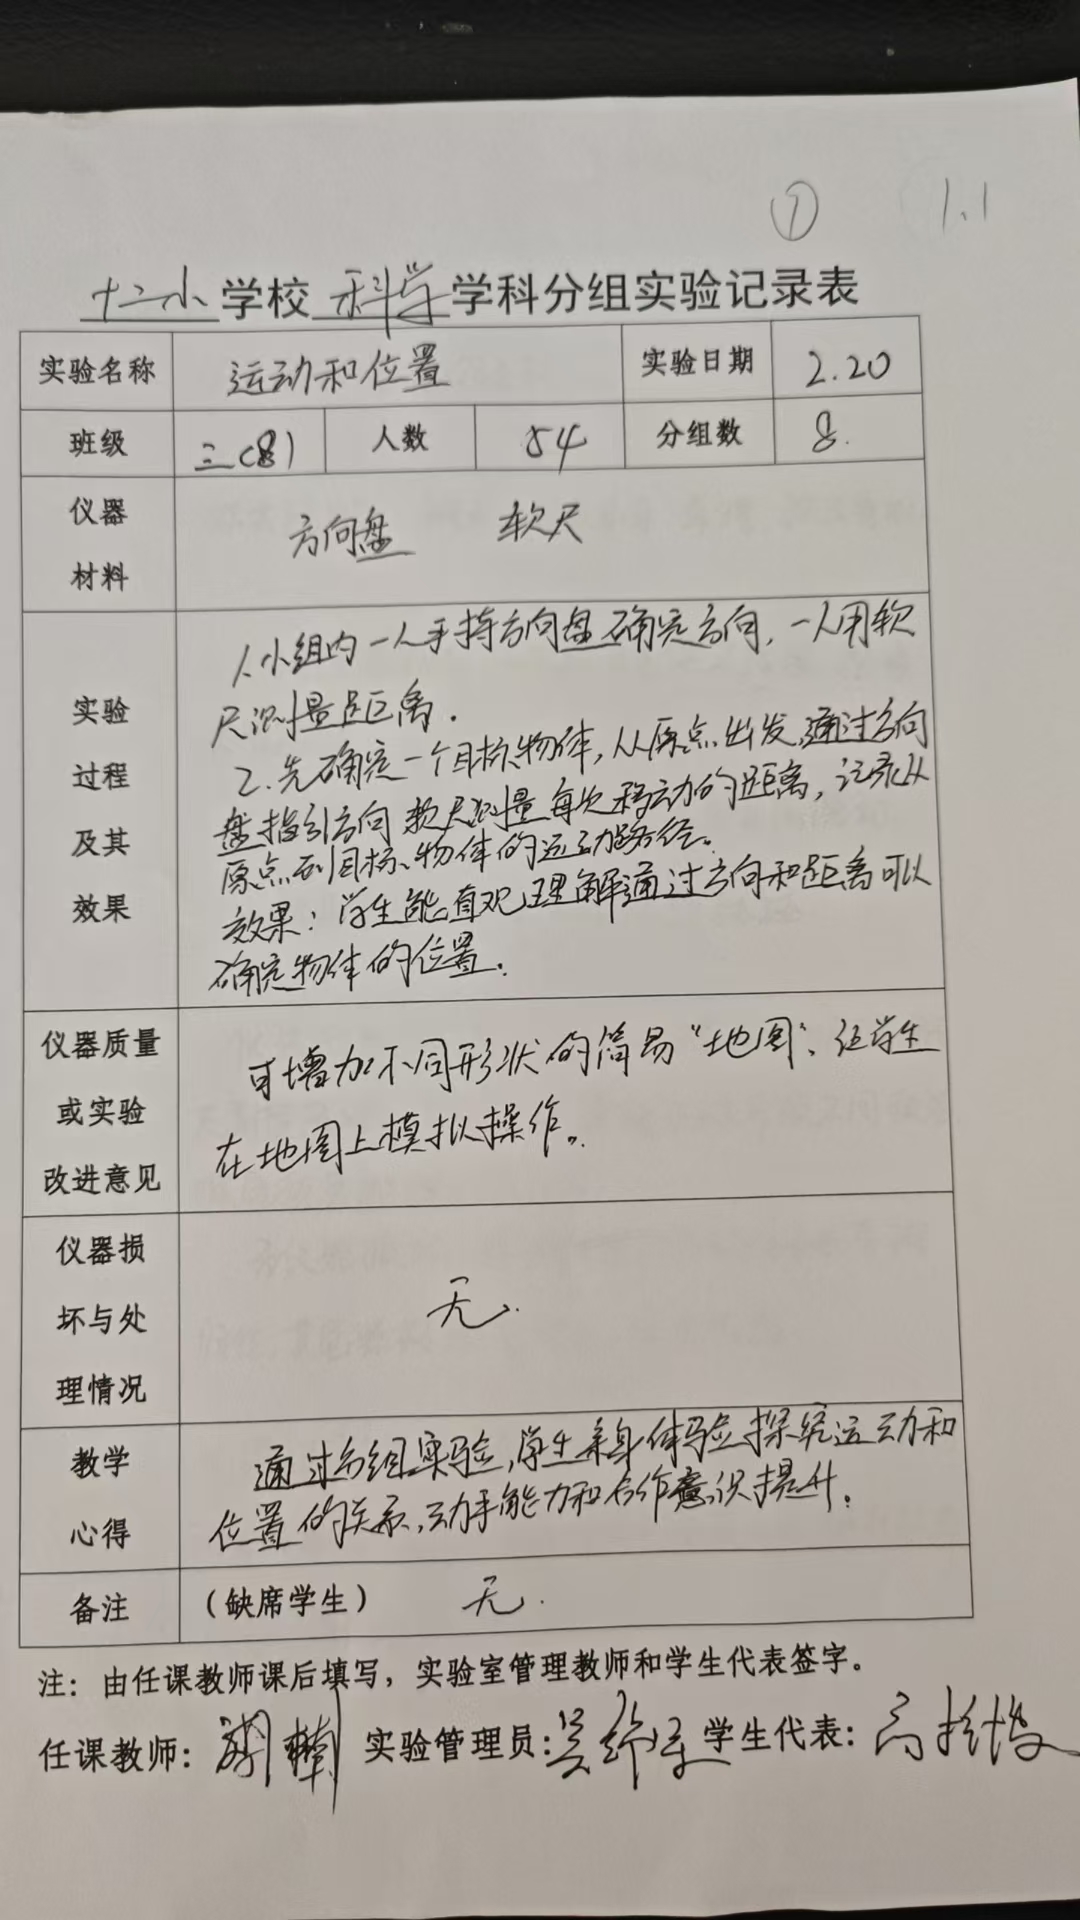 ① 1.1
十二小学校科学学科分组实验记录表
实验名称 运动和位置 实验日期 2.20
班级 三(8) 人数 54 分组数 8.
仪器
材料
方向盘 软尺
实验
过程
及其
效果
1.小组内一人手持方向盘确定方向，一人用软
尺测量距离．
2.先确定一个目标物体，从原点出发，通过方向
盘指引方向 软尺测量每次移动的距离，记录从
原点到目标物体的运动路径。
效果：学生能直观理解通过方向和距离可以
确定物体的位置．
仪器质量
或实验
改进意见
可增加不同形状的简易“地图”，让学生
在地图上模拟操作。
仪器损
坏与处
理情况
无.
教学
心得
通过分组实验，学生亲身体验探究运动和
位置的关系，动手能力和合作意识提升．
备注 （缺席学生） 无.
注：由任课教师课后填写，实验室管理教师和学生代表签字。
任课教师： 实验管理员： 学生代表：